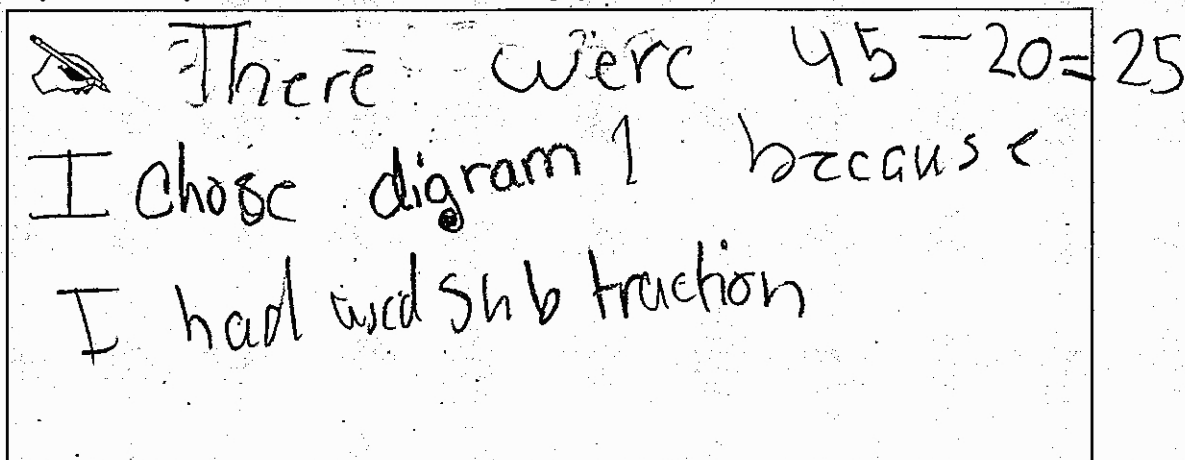 There were 45-20=25
I chose digram 1 because
I had used subtraction